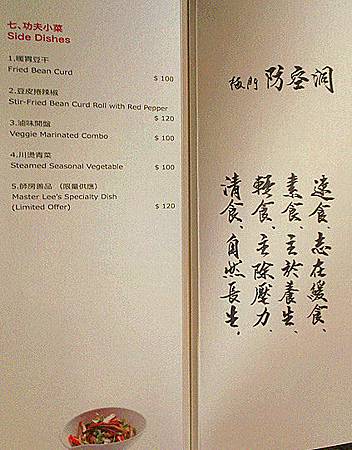 七、功夫小菜
Side Dishes
1.暖胃豆干
Fried Bean Curd
$ 100
2.豆皮捲辣椒
Stir-Fried Bean Curd Roll with Red Pepper
$ 120
3.滷味開盤
Veggie Marinated Combo
$ 100
4.川燙青菜
Steamed Seasonal Vegetable
$ 100
5.師房善品 (限量供應)
Master Lee's Specialty Dish
(Limited Offer)
$ 120
板門 防空洞
速食、志在緩食、
素食、主於養生、
輕食、主除壓力、
清食、自然長生。